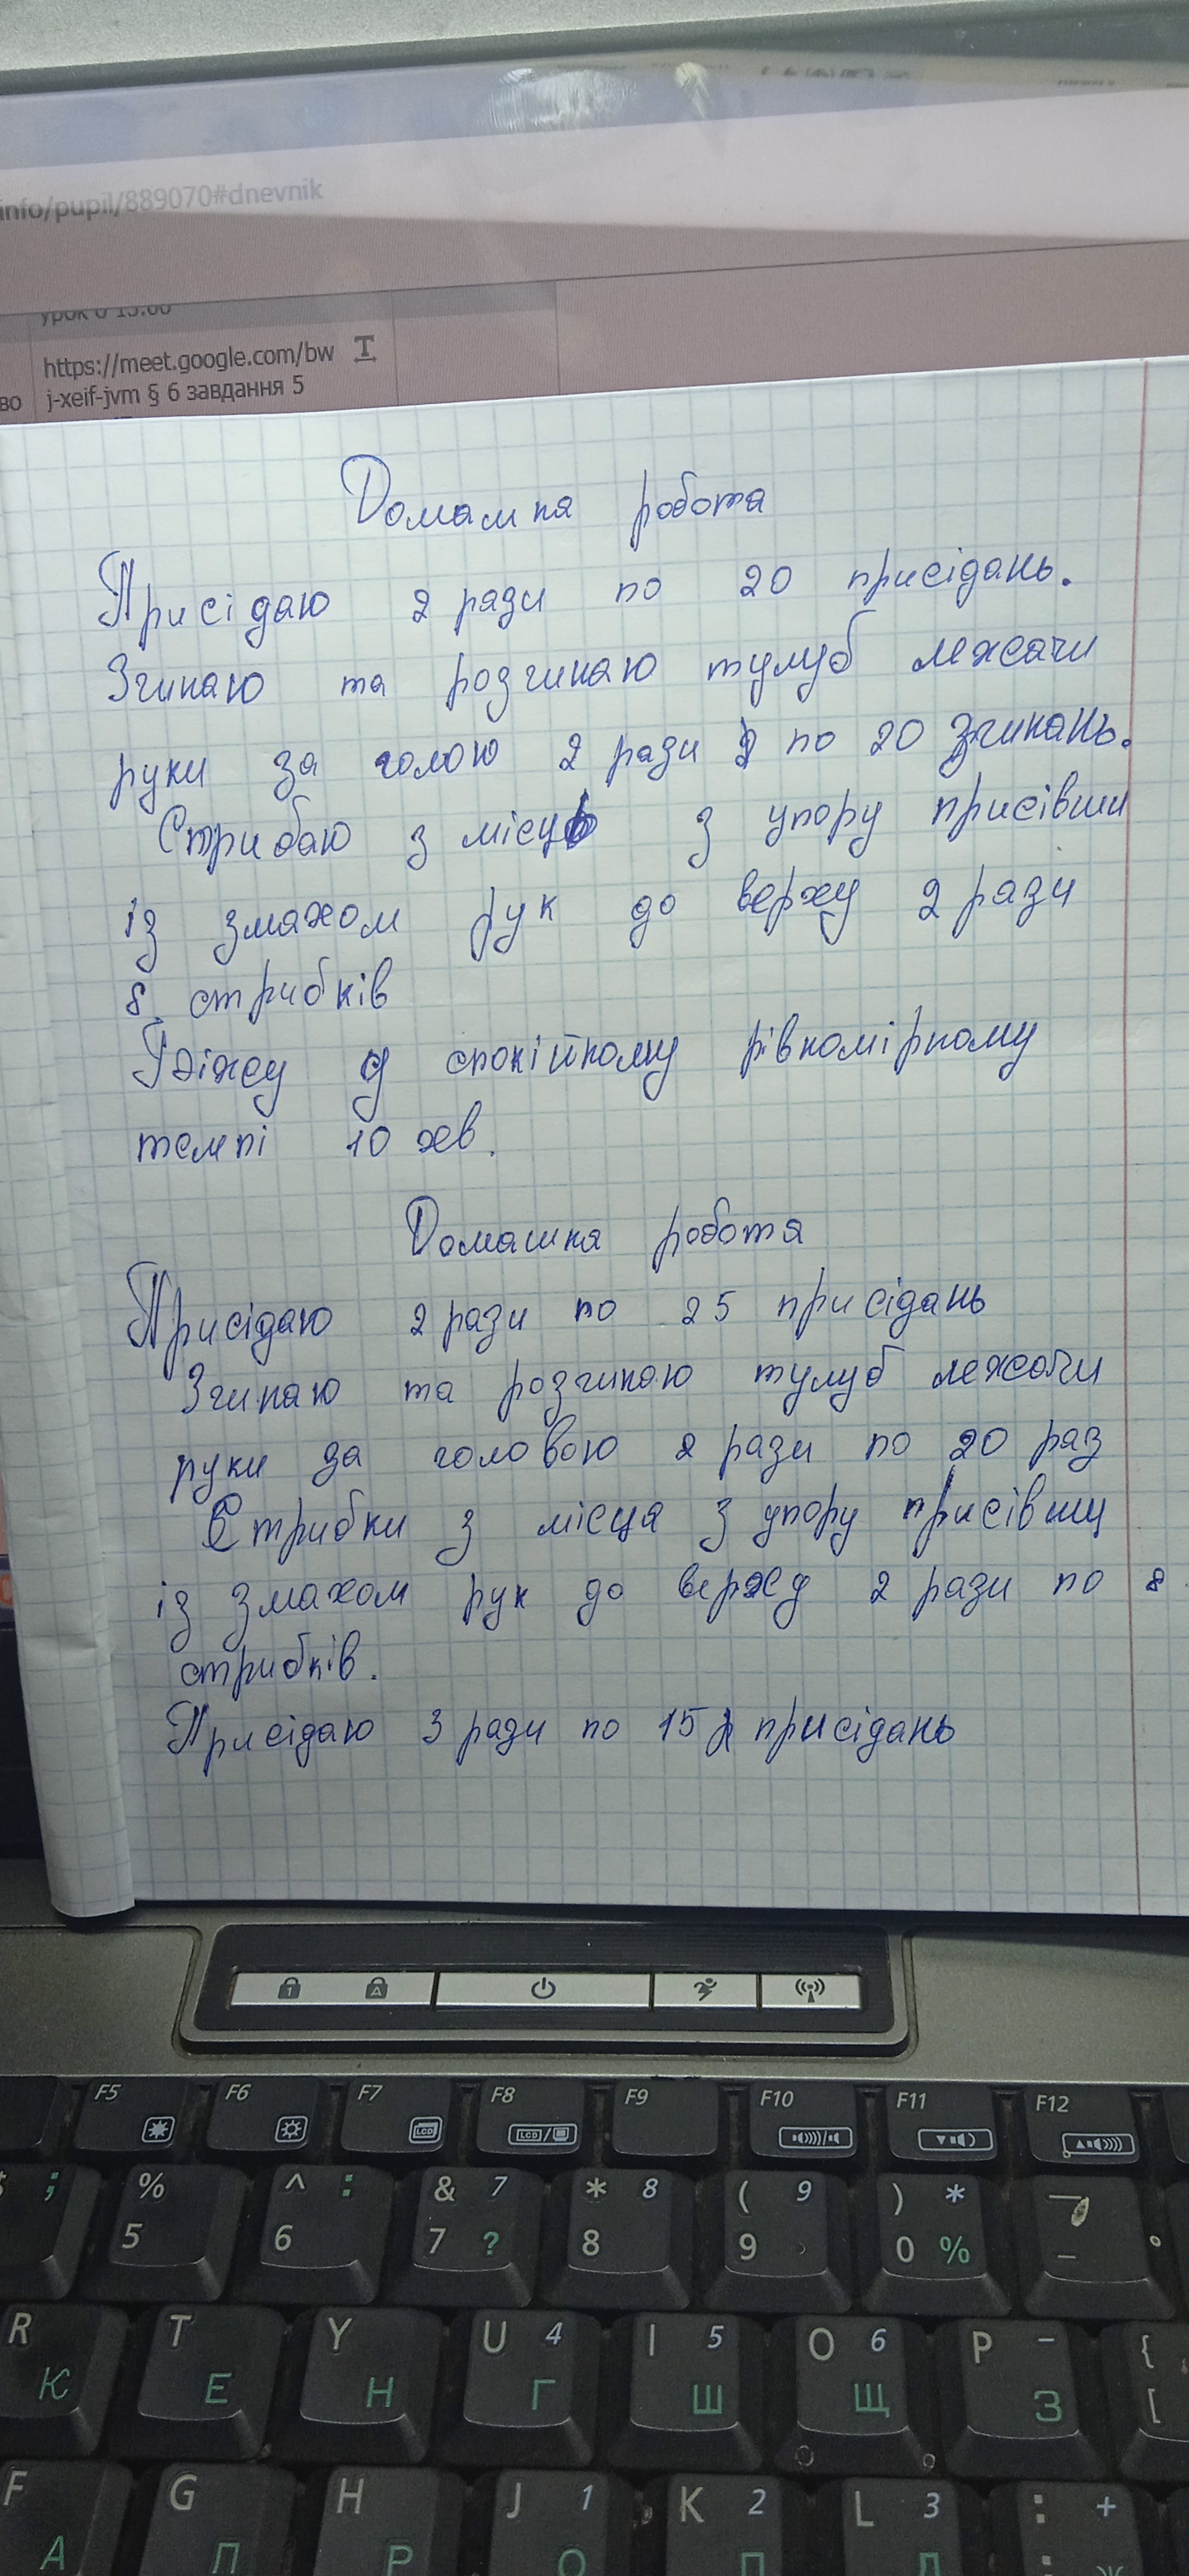 info/pupil/889070#dnevnik
урок о 13.00
https://meet.google.com/bw
j-xeif-jvm § 6 завдання 5
во
Домашня робота
Присідаю 2 рази по 20 присідань.
Згинаю та розгинаю тулуб лежачи
руки за голою 2 рази по 20 згинань.
Стрибаю з місця з упору присівши
із змахом рук до верху 2 рази
8 стрибків
Біжу у спокійному рівномірному
темпі 10 хв.
Домашня робота
Присідаю 2 рази по 25 присідань
Згинаю та розгинаю тулуб лежачи
руки за головою 2 рази по 20 раз
Стрибки з місця з упору присівши
із змахом рук до верху 2 рази по 8
стрибків.
Присідаю 3 рази по 15 присідань
1 A
F5 F6 F7 F8 F9 F10 F11 F12
LCD LCD
; % 5 ^ : 6 & 7 7 ? * 8 8 ( 9 9 ) * 0 % _ -
R К T Е Y Н U 4 Г I 5 Ш O 6 Щ P - З { [
F А G П H Р J 1 О K 2 Л L 3 Д : + ; Ж